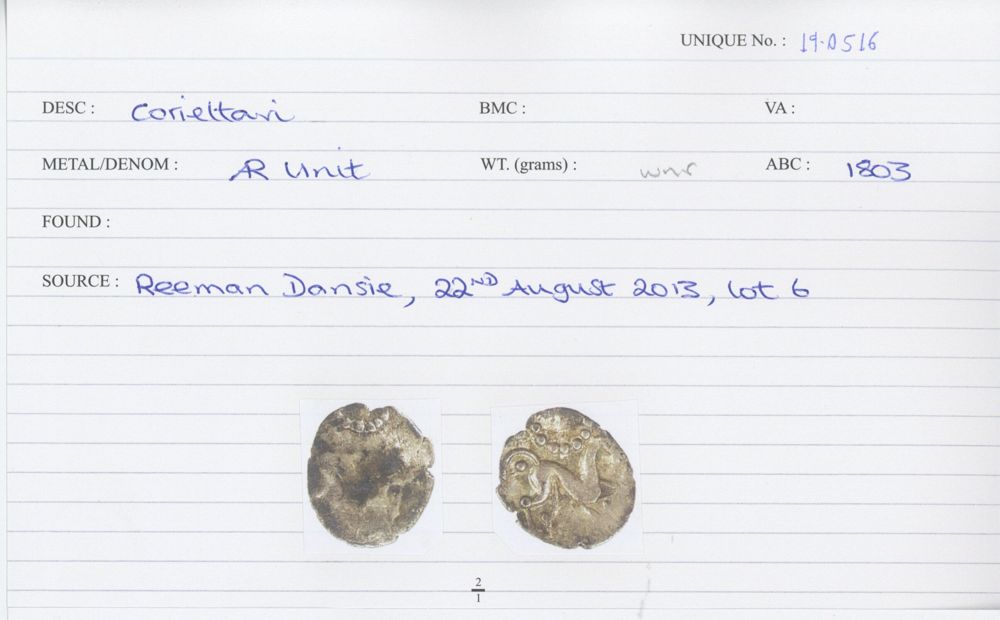 UNIQUE No. : 19.0516
DESC : Corieltavi BMC : VA :
METAL/DENOM : AR Unit WT. (grams) : wnr ABC : 1803
FOUND :
SOURCE : Reeman Dansie, 22ND August 2013, lot 6
2
1